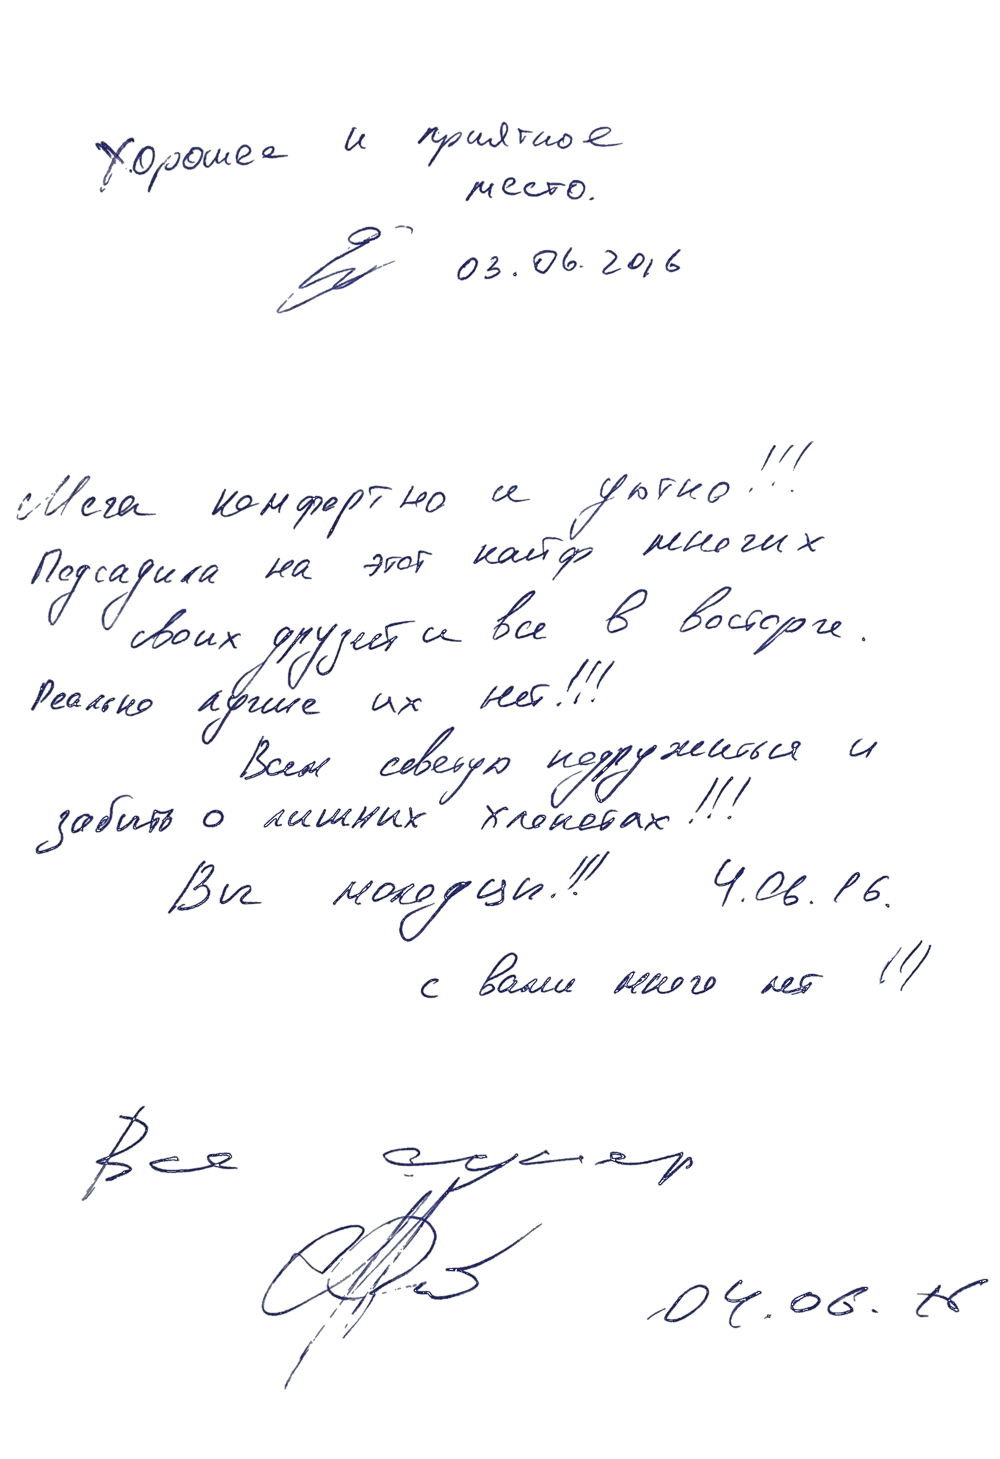 Хорошее и приятное
место.
03.06.2016
Мега комфортно и уютно!!!
Подсадила на этот кайф многих
своих друзей и все в восторге.
Реально лучше их нет!!!
Всем советую подружиться и
забыть о лишних хлопотах!!!
Вы молодцы!!! 4.06.16.
с вами много лет !!!
Все супер
04.06.16